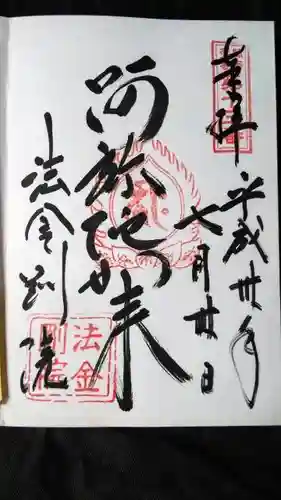 奉拝
平成卅年
七月卅日
阿弥陀如来
法金剛院
法金
剛院